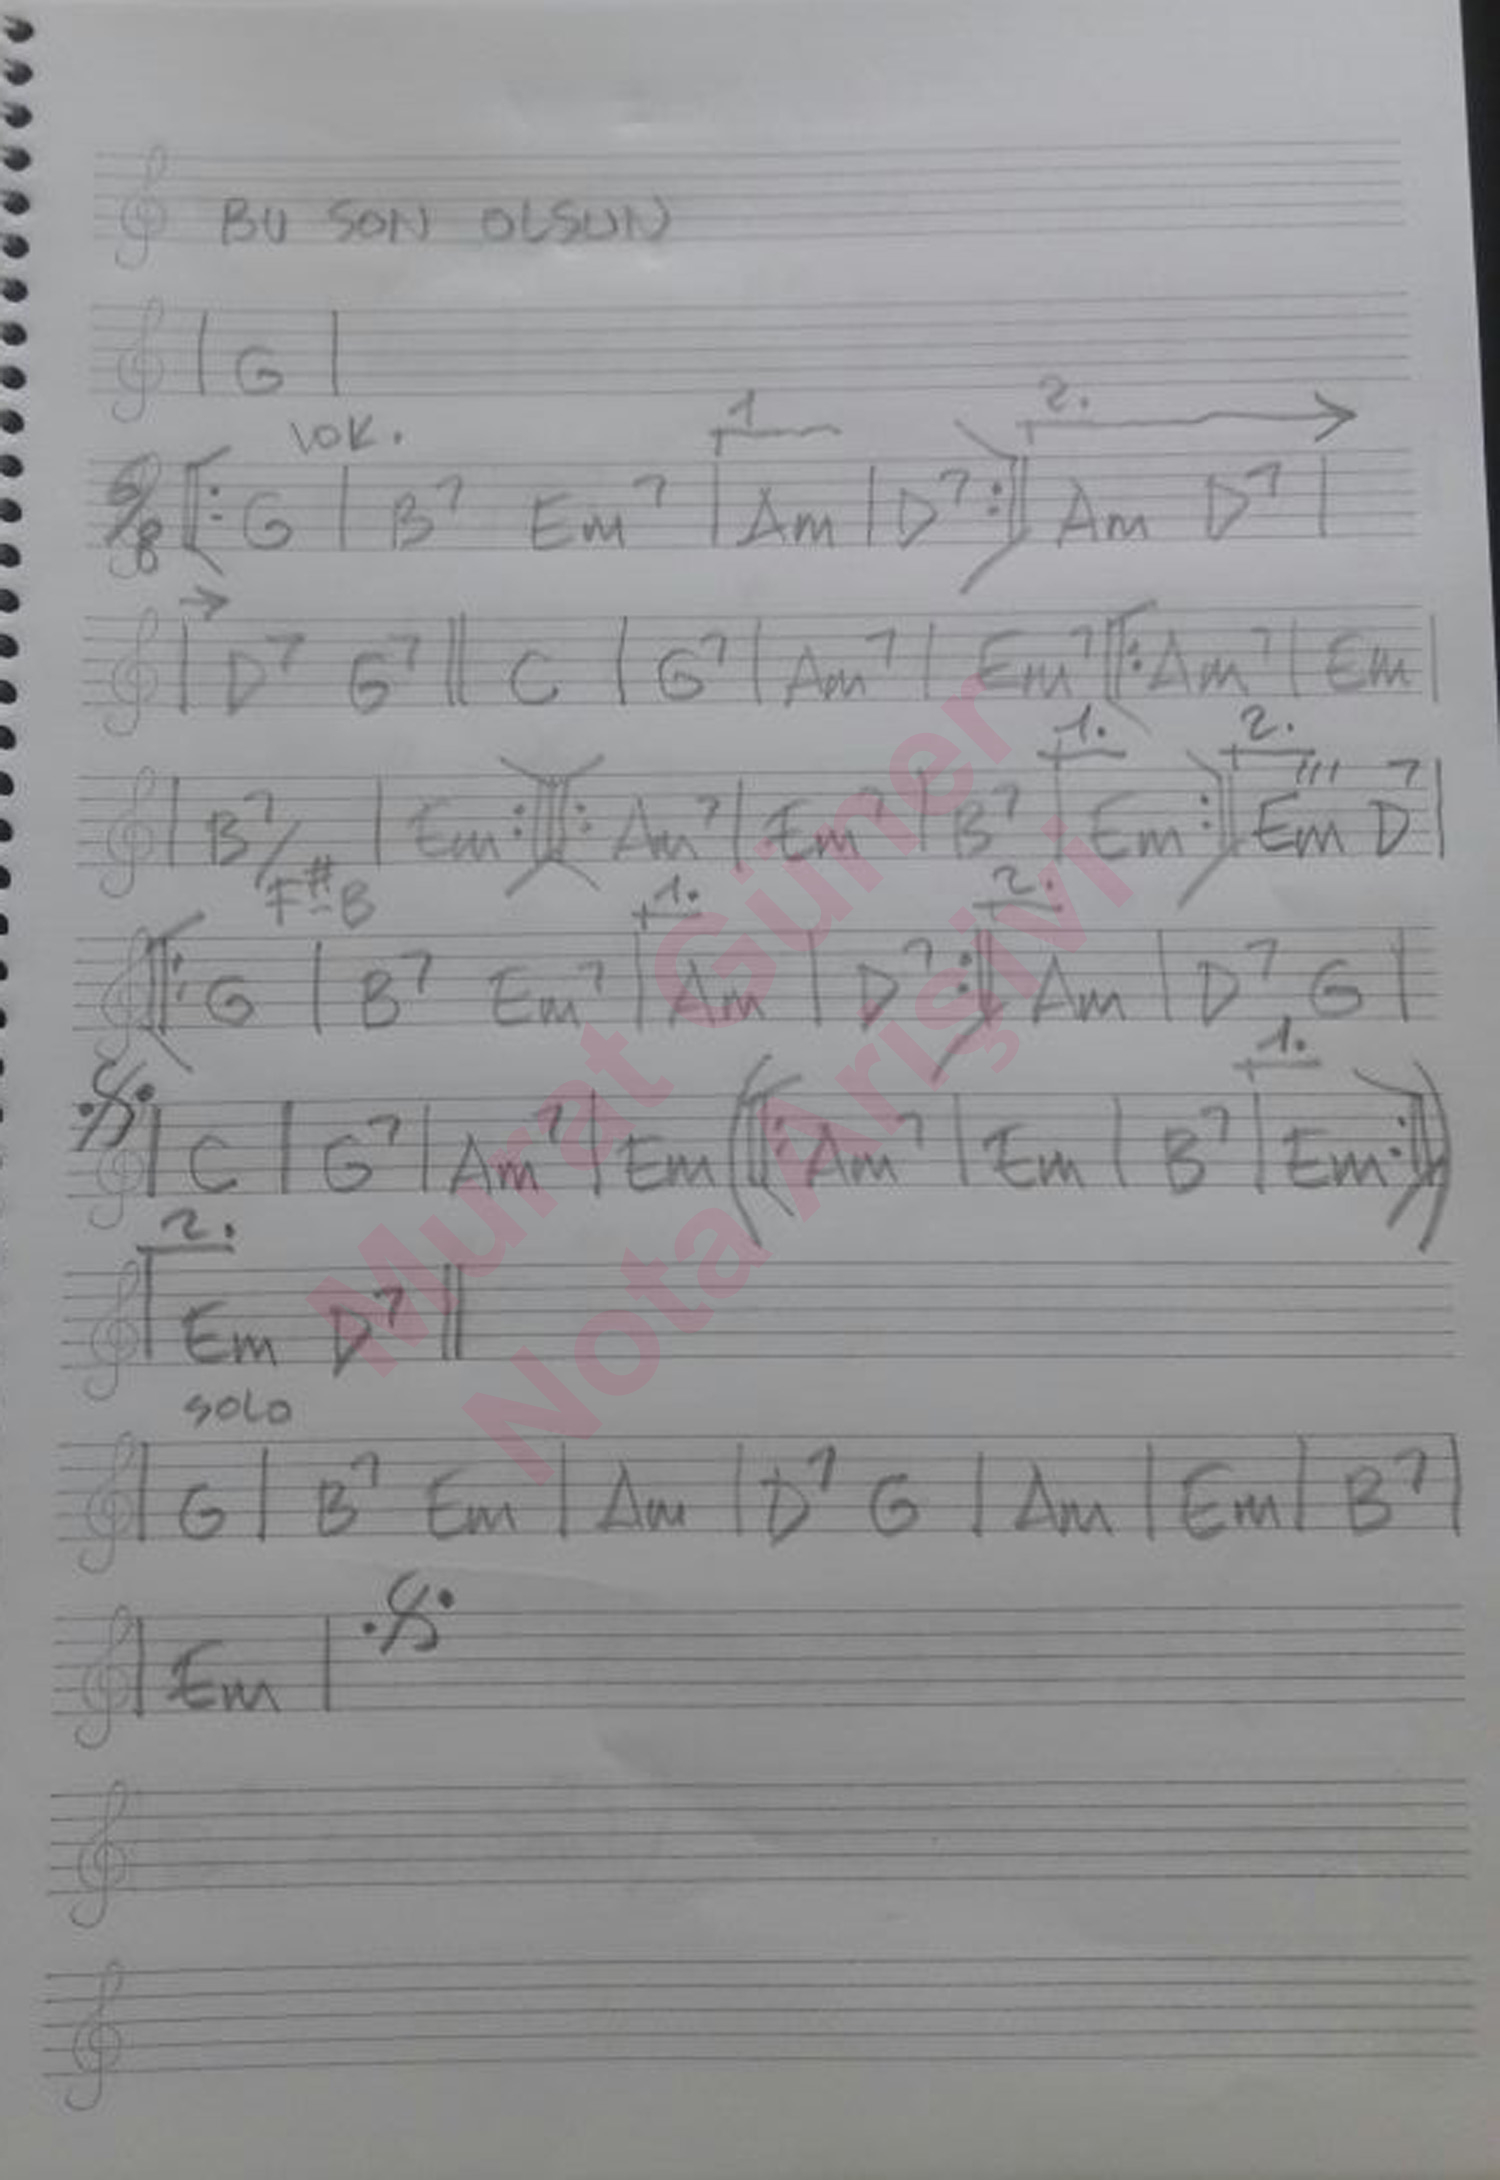 BU SON OLSUN
| G |
VOK. 1 2.
6/8 |: G | B7 Em7 | Am | D7 :| Am D7 |
| D7 G7 || C | G7 | Am7 | Em7 |: Am7 | Em |
1. 2.
| B7/F# B | Em :|: Am7 | Em7 | B7 | Em :| Em D7 |
1. 2.
|: G | B7 Em7 | Am | D7 :| Am | D7 G |
1.
| C | G7 | Am7 | Em (|: Am7 | Em | B7 | Em :|)
2.
| Em D7 ||
SOLO
| G | B7 Em | Am | D7 G | Am | Em | B7 |
| Em |
Murat Güner
Nota Arişivi